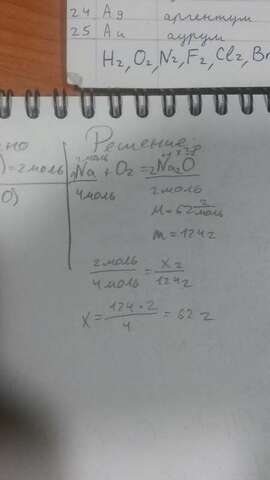 24 Ag аргентум
25 Au аурум
H₂, O₂, N₂, F₂, Cl₂, Br
но
Решение:
)=2моль
2моль x г
4Na + O₂ = 2Na₂O
O)
4моль 2моль
M=62 г/моль
m=124г
2моль/4моль = X г/124г
X = 124·2/4 = 62 г